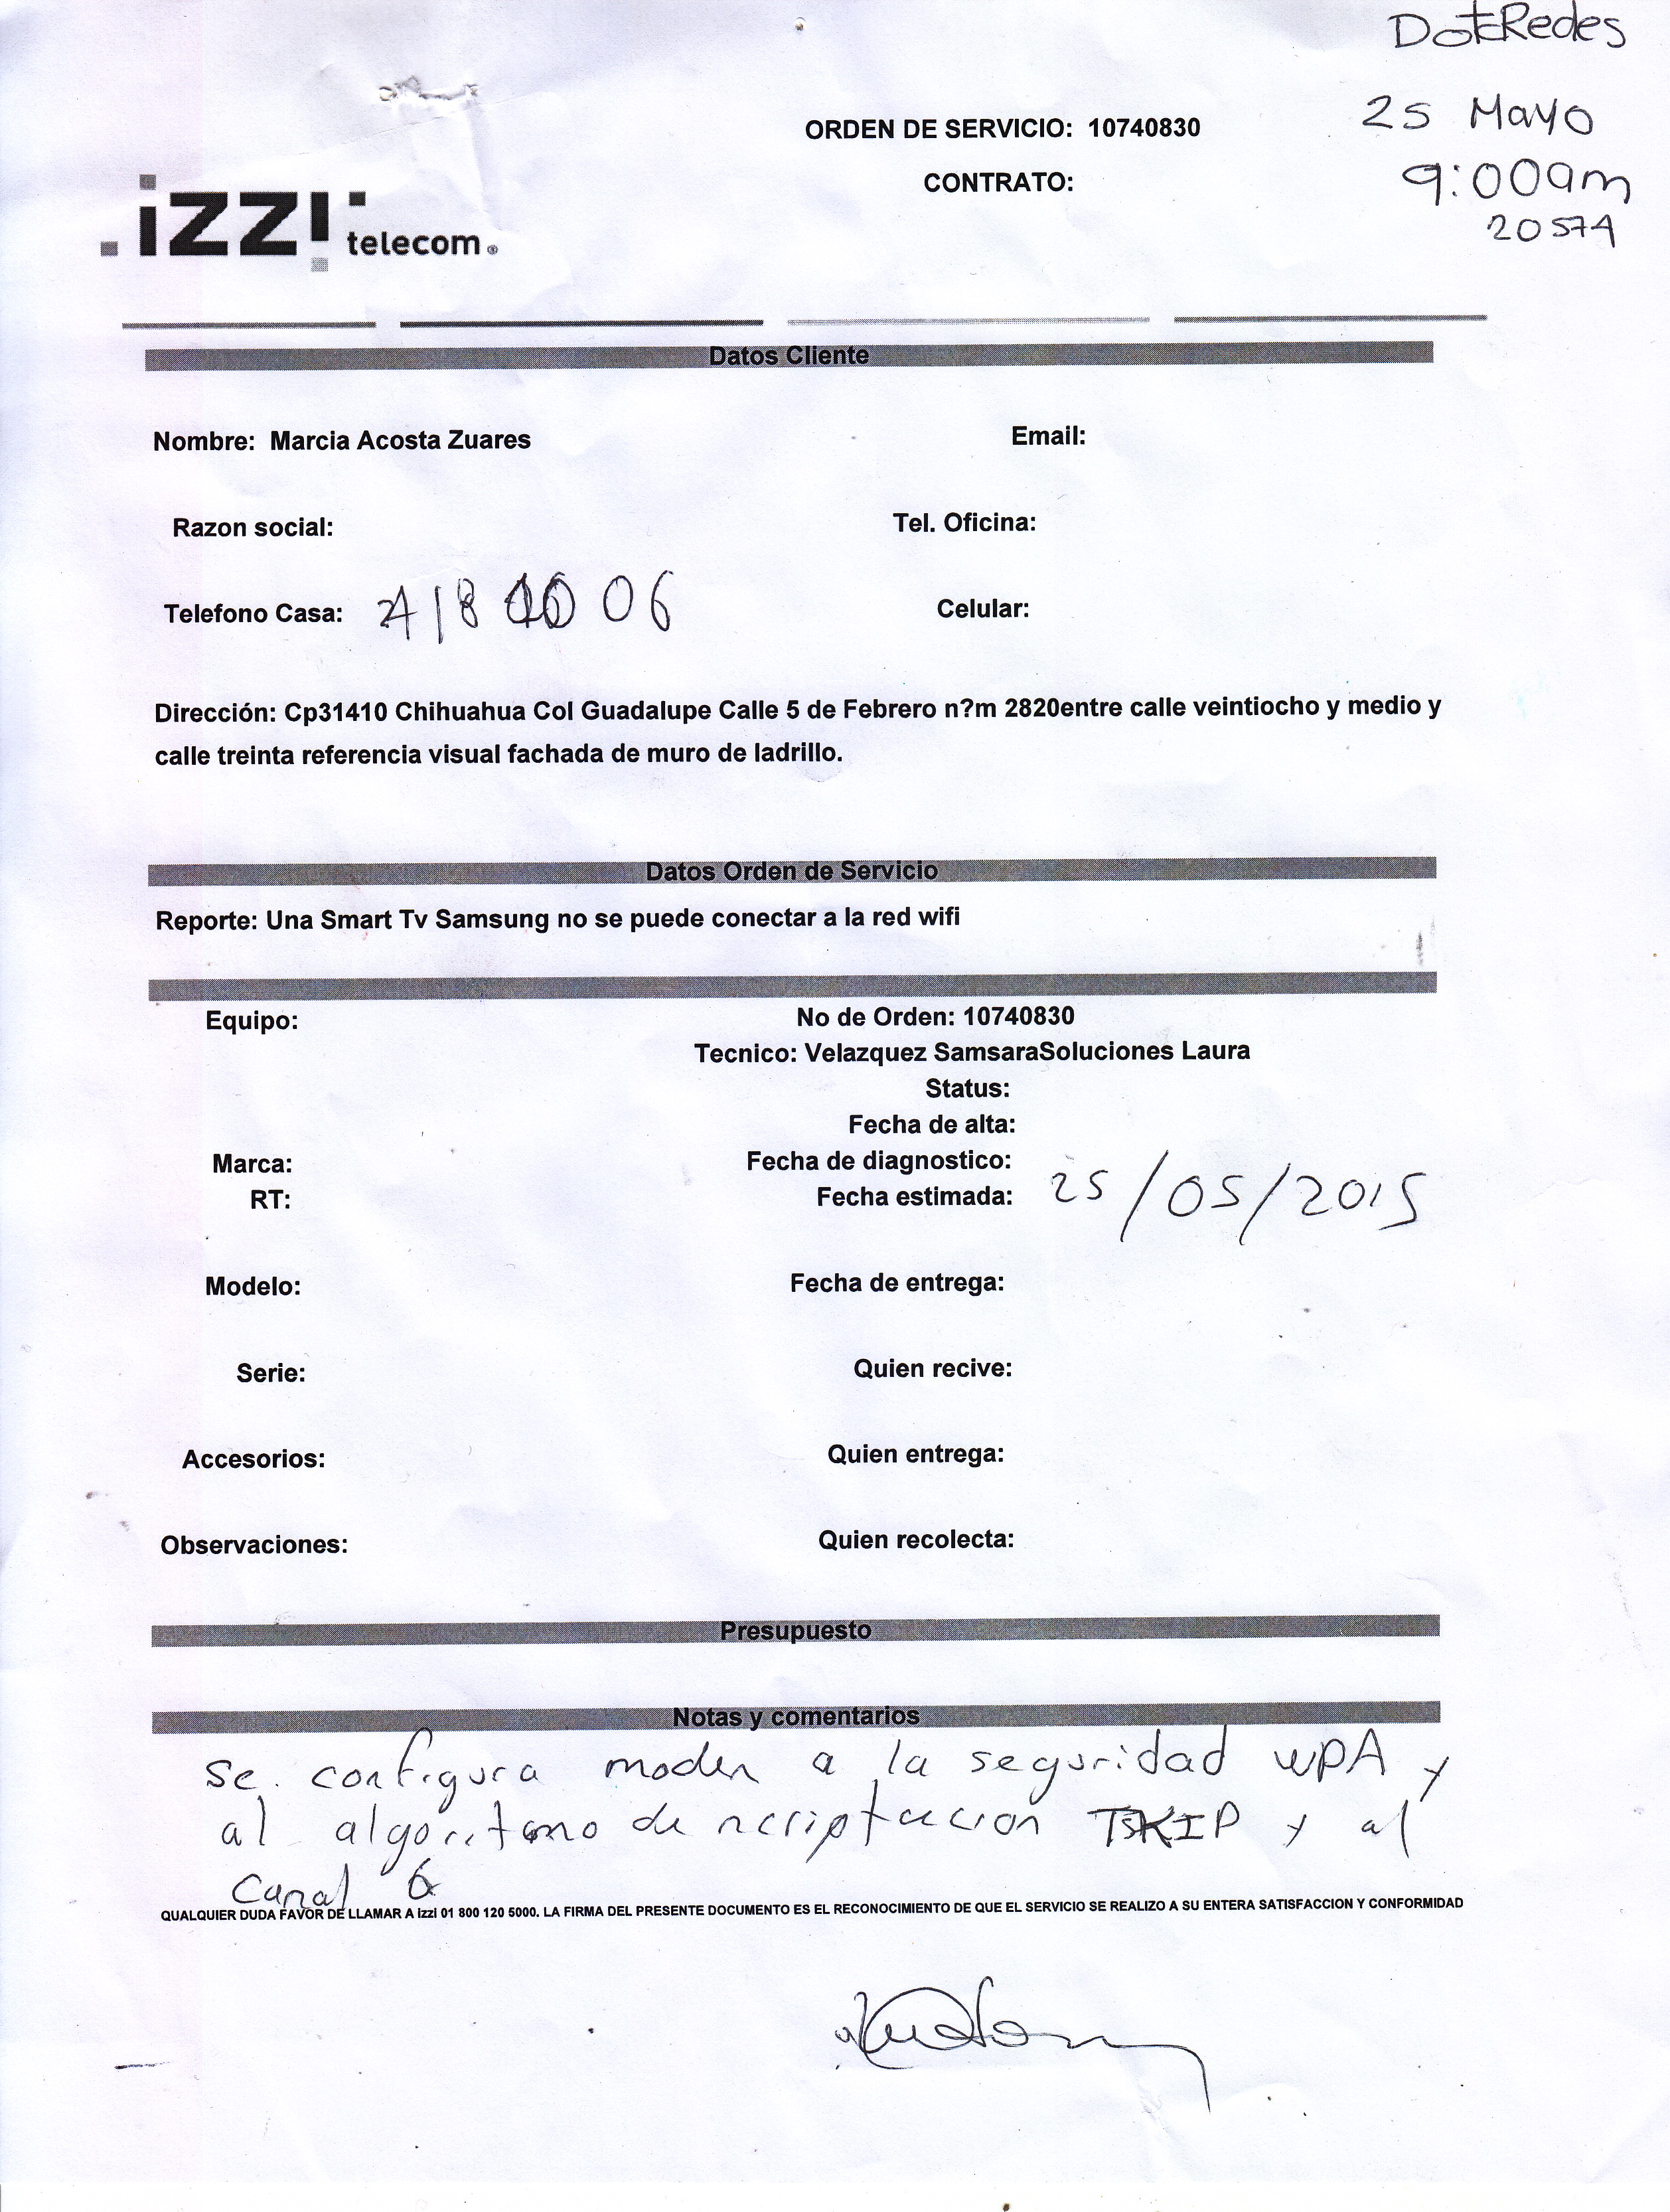 DotRedes
25 Mayo
9:00am
20574
ORDEN DE SERVICIO: 10740830
CONTRATO:
izzi telecom®
Datos Cliente
Nombre: Marcia Acosta Zuares
Email:
Razon social:
Tel. Oficina:
Telefono Casa: 06
Celular:
Dirección: Cp31410 Chihuahua Col Guadalupe Calle 5 de Febrero n?m 2820entre calle veintiocho y medio y
calle treinta referencia visual fachada de muro de ladrillo.
Datos Orden de Servicio
Reporte: Una Smart Tv Samsung no se puede conectar a la red wifi
Equipo:
No de Orden: 10740830
Tecnico: Velazquez SamsaraSoluciones Laura
Status:
Fecha de alta:
Marca:
Fecha de diagnostico:
RT:
Fecha estimada: 25/05/2015
Modelo:
Fecha de entrega:
Serie:
Quien recive:
Accesorios:
Quien entrega:
Observaciones:
Quien recolecta:
Presupuesto
Notas y comentarios
se configura modem a la seguridad WPA y
al algoritmo de ncriptacion TKIP y al
Canal 6
QUALQUIER DUDA FAVOR DE LLAMAR A izzi 01 800 120 5000. LA FIRMA DEL PRESENTE DOCUMENTO ES EL RECONOCIMIENTO DE QUE EL SERVICIO SE REALIZO A SU ENTERA SATISFACCION Y CONFORMIDAD